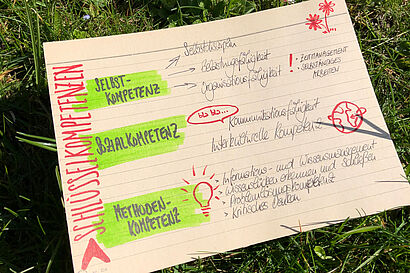 SCHLÜSSELKOMPETENZEN
SELBST-
KOMPETENZ
Organisationsfähigkeit
! • ZEITMANAGEMENT
• SELBSTÄNDIGES
ARBEITEN
SOZIALKOMPETENZ
bla bla...
Kommunikationsfähigkeit
Interkulturelle Kompetenz
METHODEN-
KOMPETENZ
• Informations- und Wissensmanagement
• Wissenslücken erkennen und schließen
• Problemlösungskompetenz
• Kritisches Denken